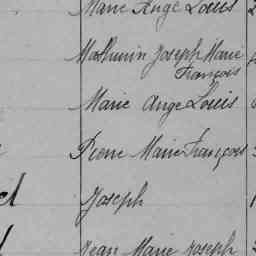 Marie Ange Louis
Mathurin Joseph Marie
François
Marie Ange Louis
Pierre Marie François
Joseph
Jean Marie Joseph